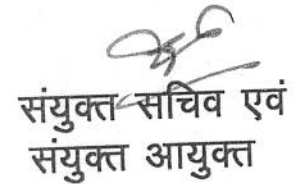 संयुक्त सचिव एवं
संयुक्त आयुक्त